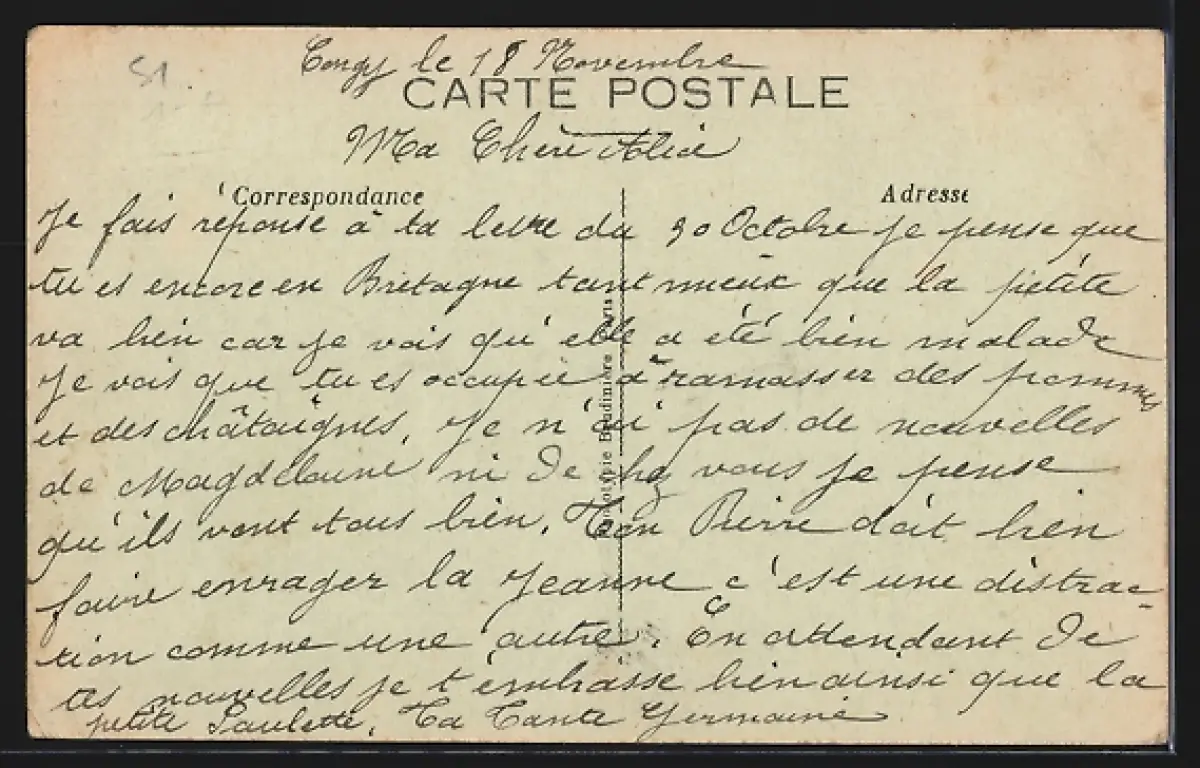 51
Congy le 18 Novembre
CARTE POSTALE
Ma Chère Alice
Correspondance
Adresse
Je fais réponse à ta lettre du 30 Octobre je pense que
tu es encore en Bretagne tant mieux que la petite
va bien car je vois qu'elle a été bien malade
Je vois que tu es occupée à ramasser des pommes
et des châtaignes. Je n'ai pas de nouvelles
de Magdelaine ni de chez vous je pense
qu'ils vont tous bien. Ton Pierre doit bien
faire enrager la Jeanne c'est une distrac-
tion comme une autre. En attendant de
tes nouvelles je t'embrasse bien ainsi que la
petite Paulette. Ta Tante Germaine
Baudinière Paris